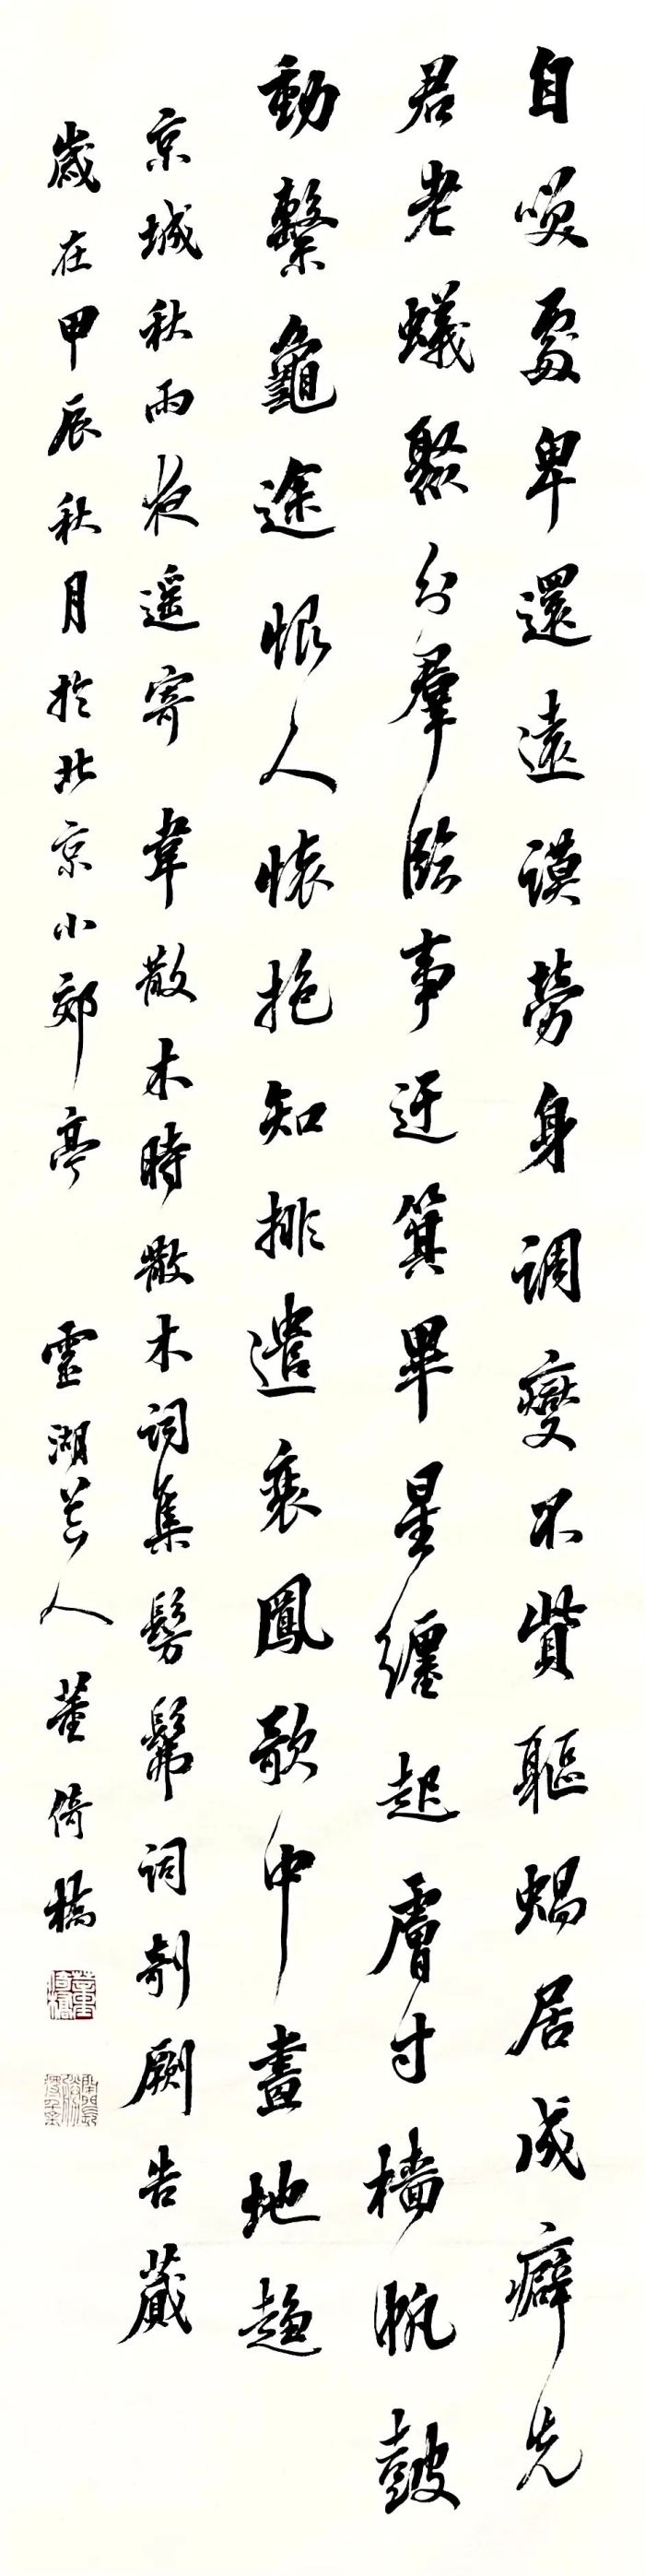 自咲處卑還遠謨勞身調燮不貲軀蝸居成癖先
君老蟻聚分羣臨事迂箕畢星纏起膚寸檣帆鼓
動繫龜途恨人懷抱知排遣衰鳳歌中畫地趨
京城秋雨夜遥寄 韋散木時散木詞集髣髴詞剞劂告蕆
歲在甲辰秋月於北京小郊亭 靈湖芒人董倚橋
董倚橋